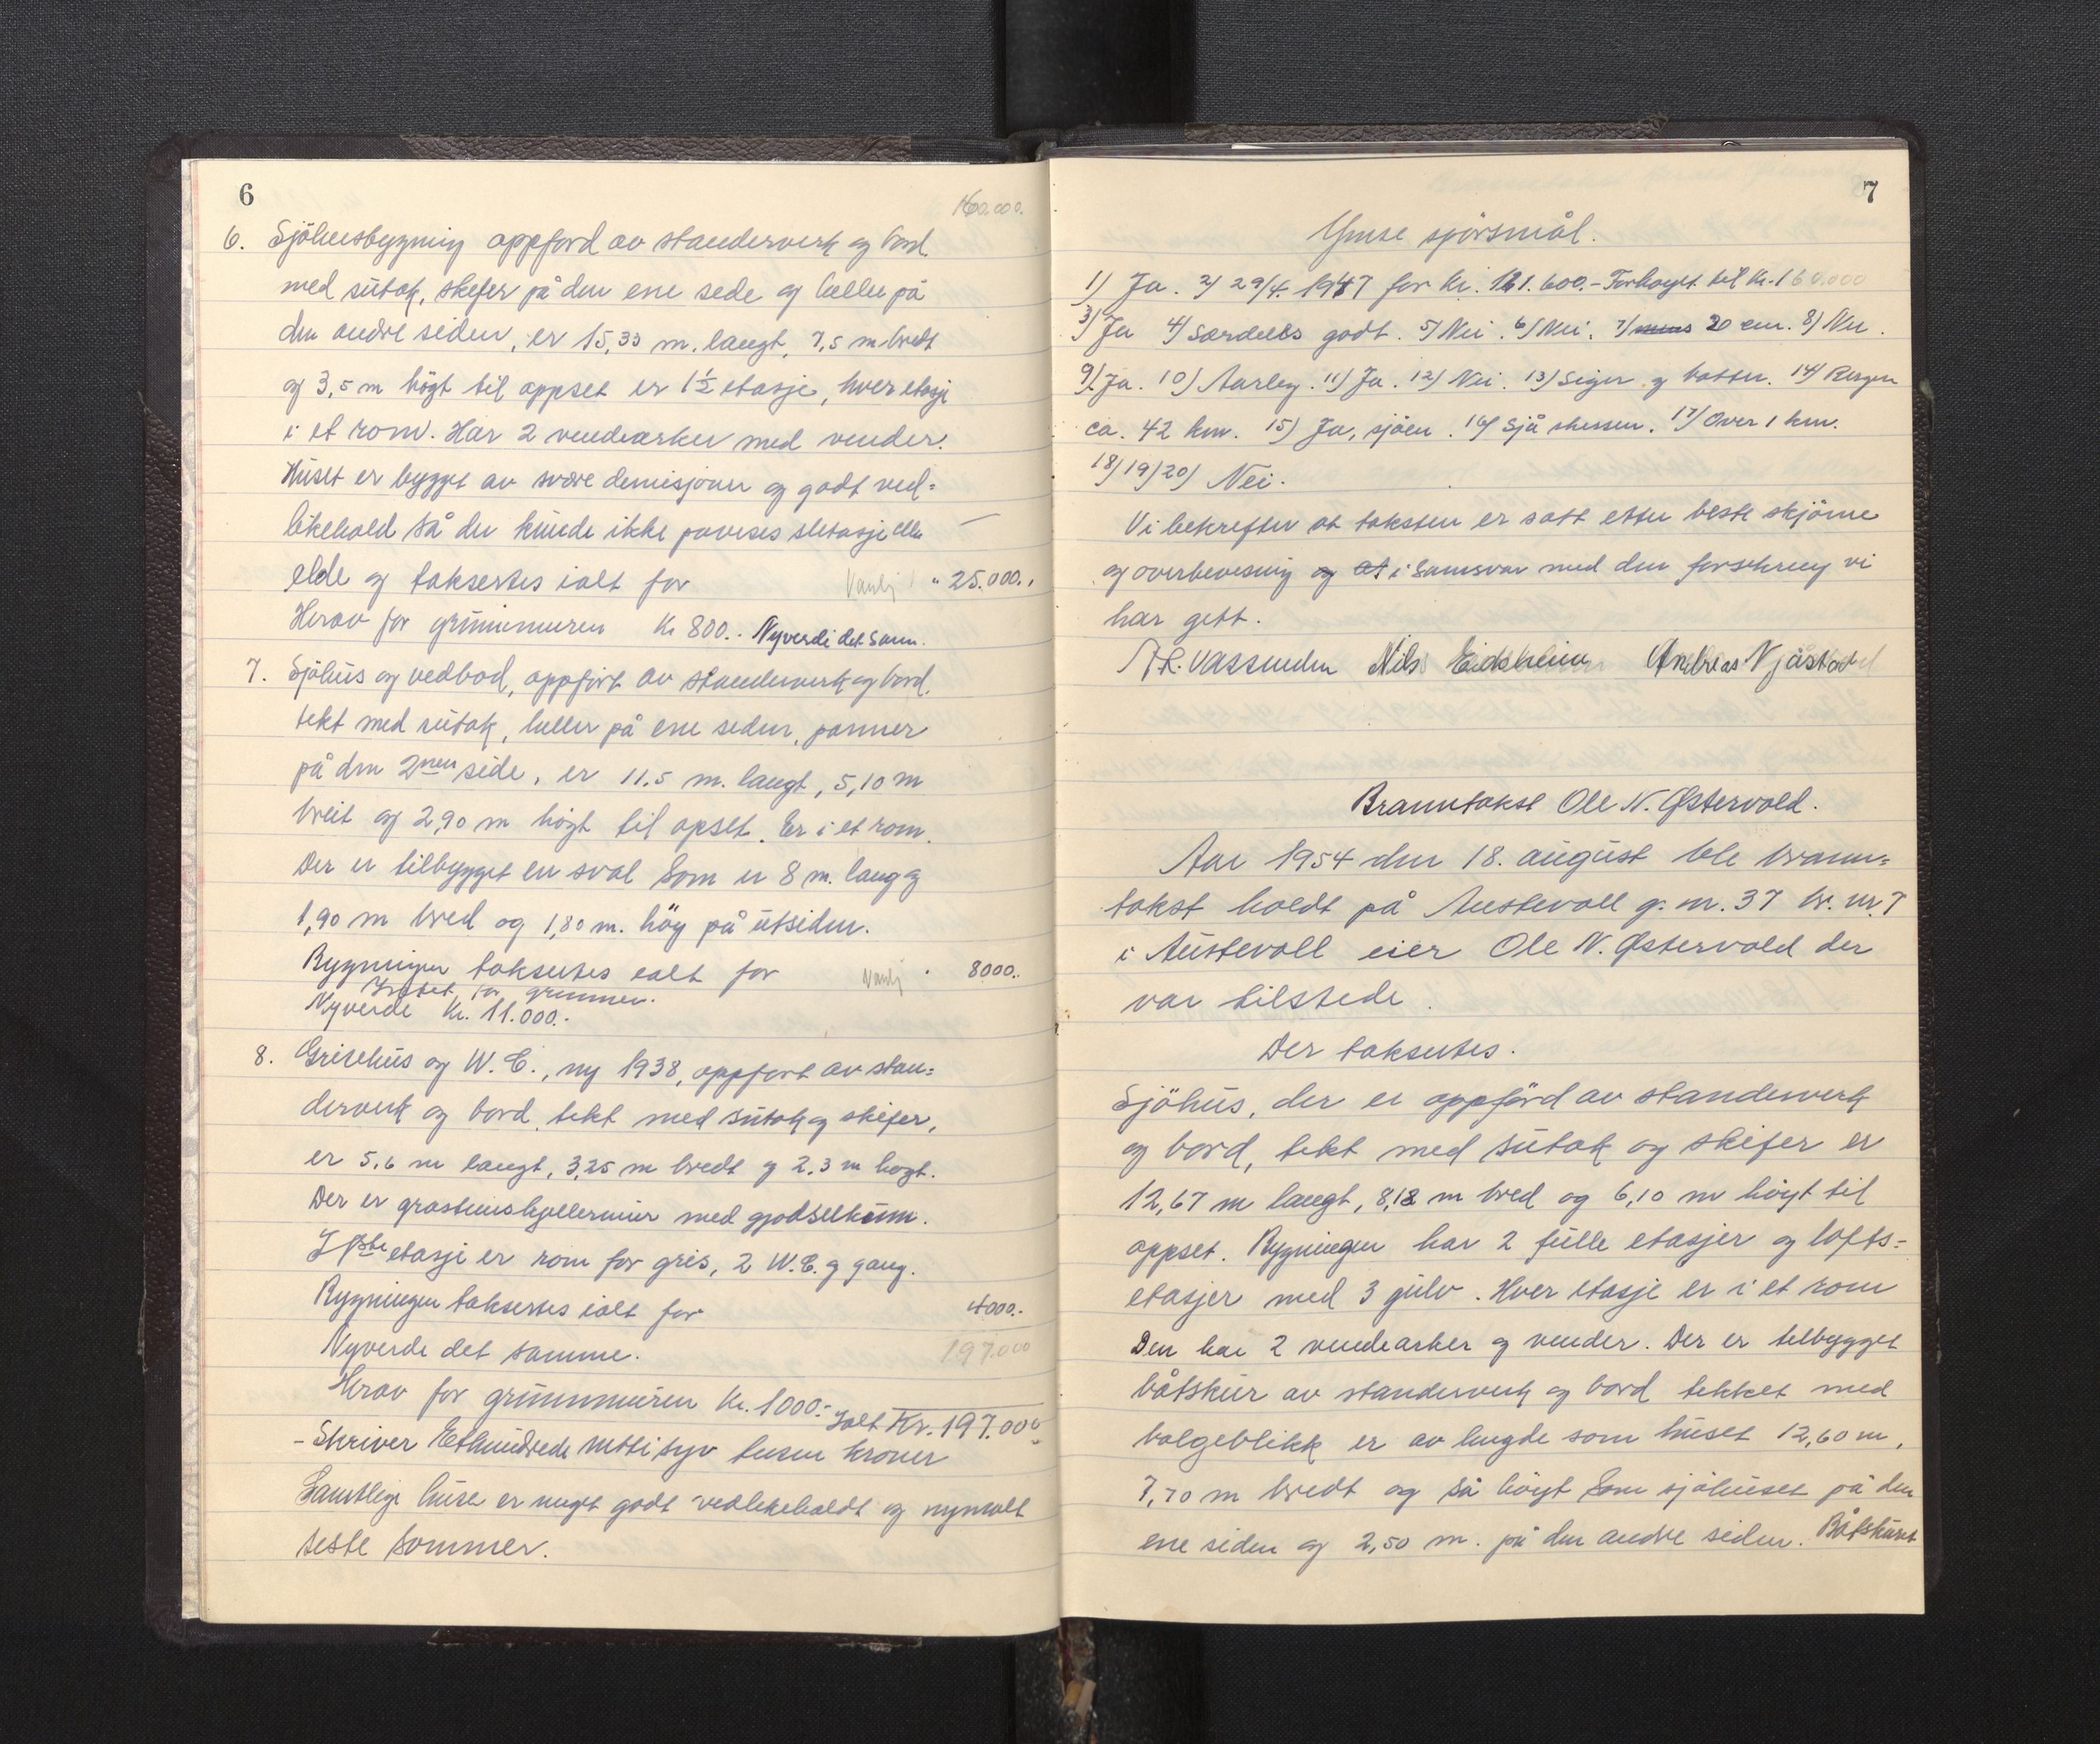 6
160.000.
6. Sjöhusbygning oppförd av standerverk og bord
med sutak, skifer på den ene sede og heller på
den andre siden, er 15,33 m. langt, 7,5 m bredt
og 3,5 m högt til oppset er 1½ etasje, hver etasje
i et rom. Har 2 vendearker med vender.
Huset er bygget av svære demisjoner og godt ved=
likehold så der kunde ikke paveises sletasje eller
elde og takseres ialt for Vanlig " 25.000.,
Herav for grunnmuren Kr 800.- Nyverdi det samme.
7. Sjöhus og vedbod, oppfört av standerverk og bord,
tekt med sutak, heller på ene seden, panner
på den 2nen side, er 11.5 m. langt, 5,10 m
breit og 2,90 m högt til opset. Er i et rom.
Der er tilbygget en sval som er 8 m. lang og
1,90 m bred og 1,80 m. hög på utsiden.
Bygningen takseres ialt for Vanlig " 8000..
Intet for grunnen.
Nyverde Kr. 11.000.-
8. Grisehus og W.C., ny 1938, oppfört av stan=
derverk og bord, tekt med sutak og skifer,
er 5.6 m langt, 3,25 m bredt og 2.3 m högt.
Der er grasteinskjellermur med gjödselkum.
I 1ste etasje er rom for gris, 2 W.C. og gang.
Bygningen takseres ialt for 4000.-
Nyverde det samme. 197.000
Herav for grunnmuren Kr. 1000.- Ialt Kr. 197.000
- Skriver Ethundrede nitti syv tusen kroner
Samtlige huse er meget godt vedlekeholdt og nymalt
siste sommer.
7
Ymse spörsmål.
1) Ja. 2) 29/4. 1947 for Kr. 121.600.- Forhöyet til Kr. 160.000
3) Ja 4) Særdeles godt. 5) Nei. 6) Nei. 7) 20 cm. 8) Nei.
9) Ja. 10) Aarleg. 11) Ja. 12) Nei. 13) Siger og bötter. 14) Bergen
ca. 42 km. 15) Ja, sjöen. 16) Sjå skissen. 17) Over 1 km.
18) 19) 20) Nei.
Vi bekrefter at taksten er satt etter beste skjönne
og overbevisning og at i samsvar med den forsikring vi
har gett.
N.K. Vassenden Nils Eidsheim Andreas Njåstad
Branntakst Ole N. Østervold.
Aar 1954 den 18. august ble brann=
takst holdt på Austevoll g. nr. 37 br. nr. 7
i Austevoll eier Ole N. Østervold der
var tilstede.
Der takseres.
Sjöhus, der er oppförd av standerverk
og bord, tekt med sutak og skifer er
12,67 m langt, 8,18 m bred og 6,10 m höyt til
oppset. Bygningen har 2 fulle etasjer og lofts=
etasjer med 3 gulv. Hver etasje er i et rom
Den har 2 vendearker og vender. Der er tilbygget
båtskur av standerverk og bord tekket med
bölgeblikk er av lengde som huset 12,60 m,
7,70 m bredt og så höyt som sjöhuset på den
ene siden og 2,50 m. på den andre siden. Båtskuret